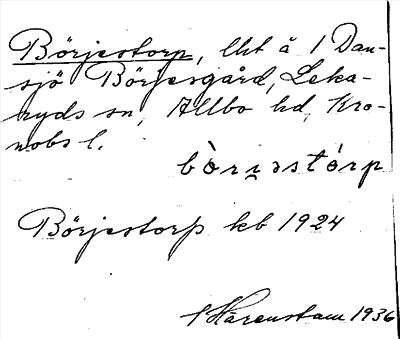 Börjestorp, lht å 1 Dan-
sjö Börjesgård, Leka-
ryds sn, Allbo hd, Kro-
nobs l.
bòrjəstórp
Börjestorp kb 1924
Hårenstam 1936